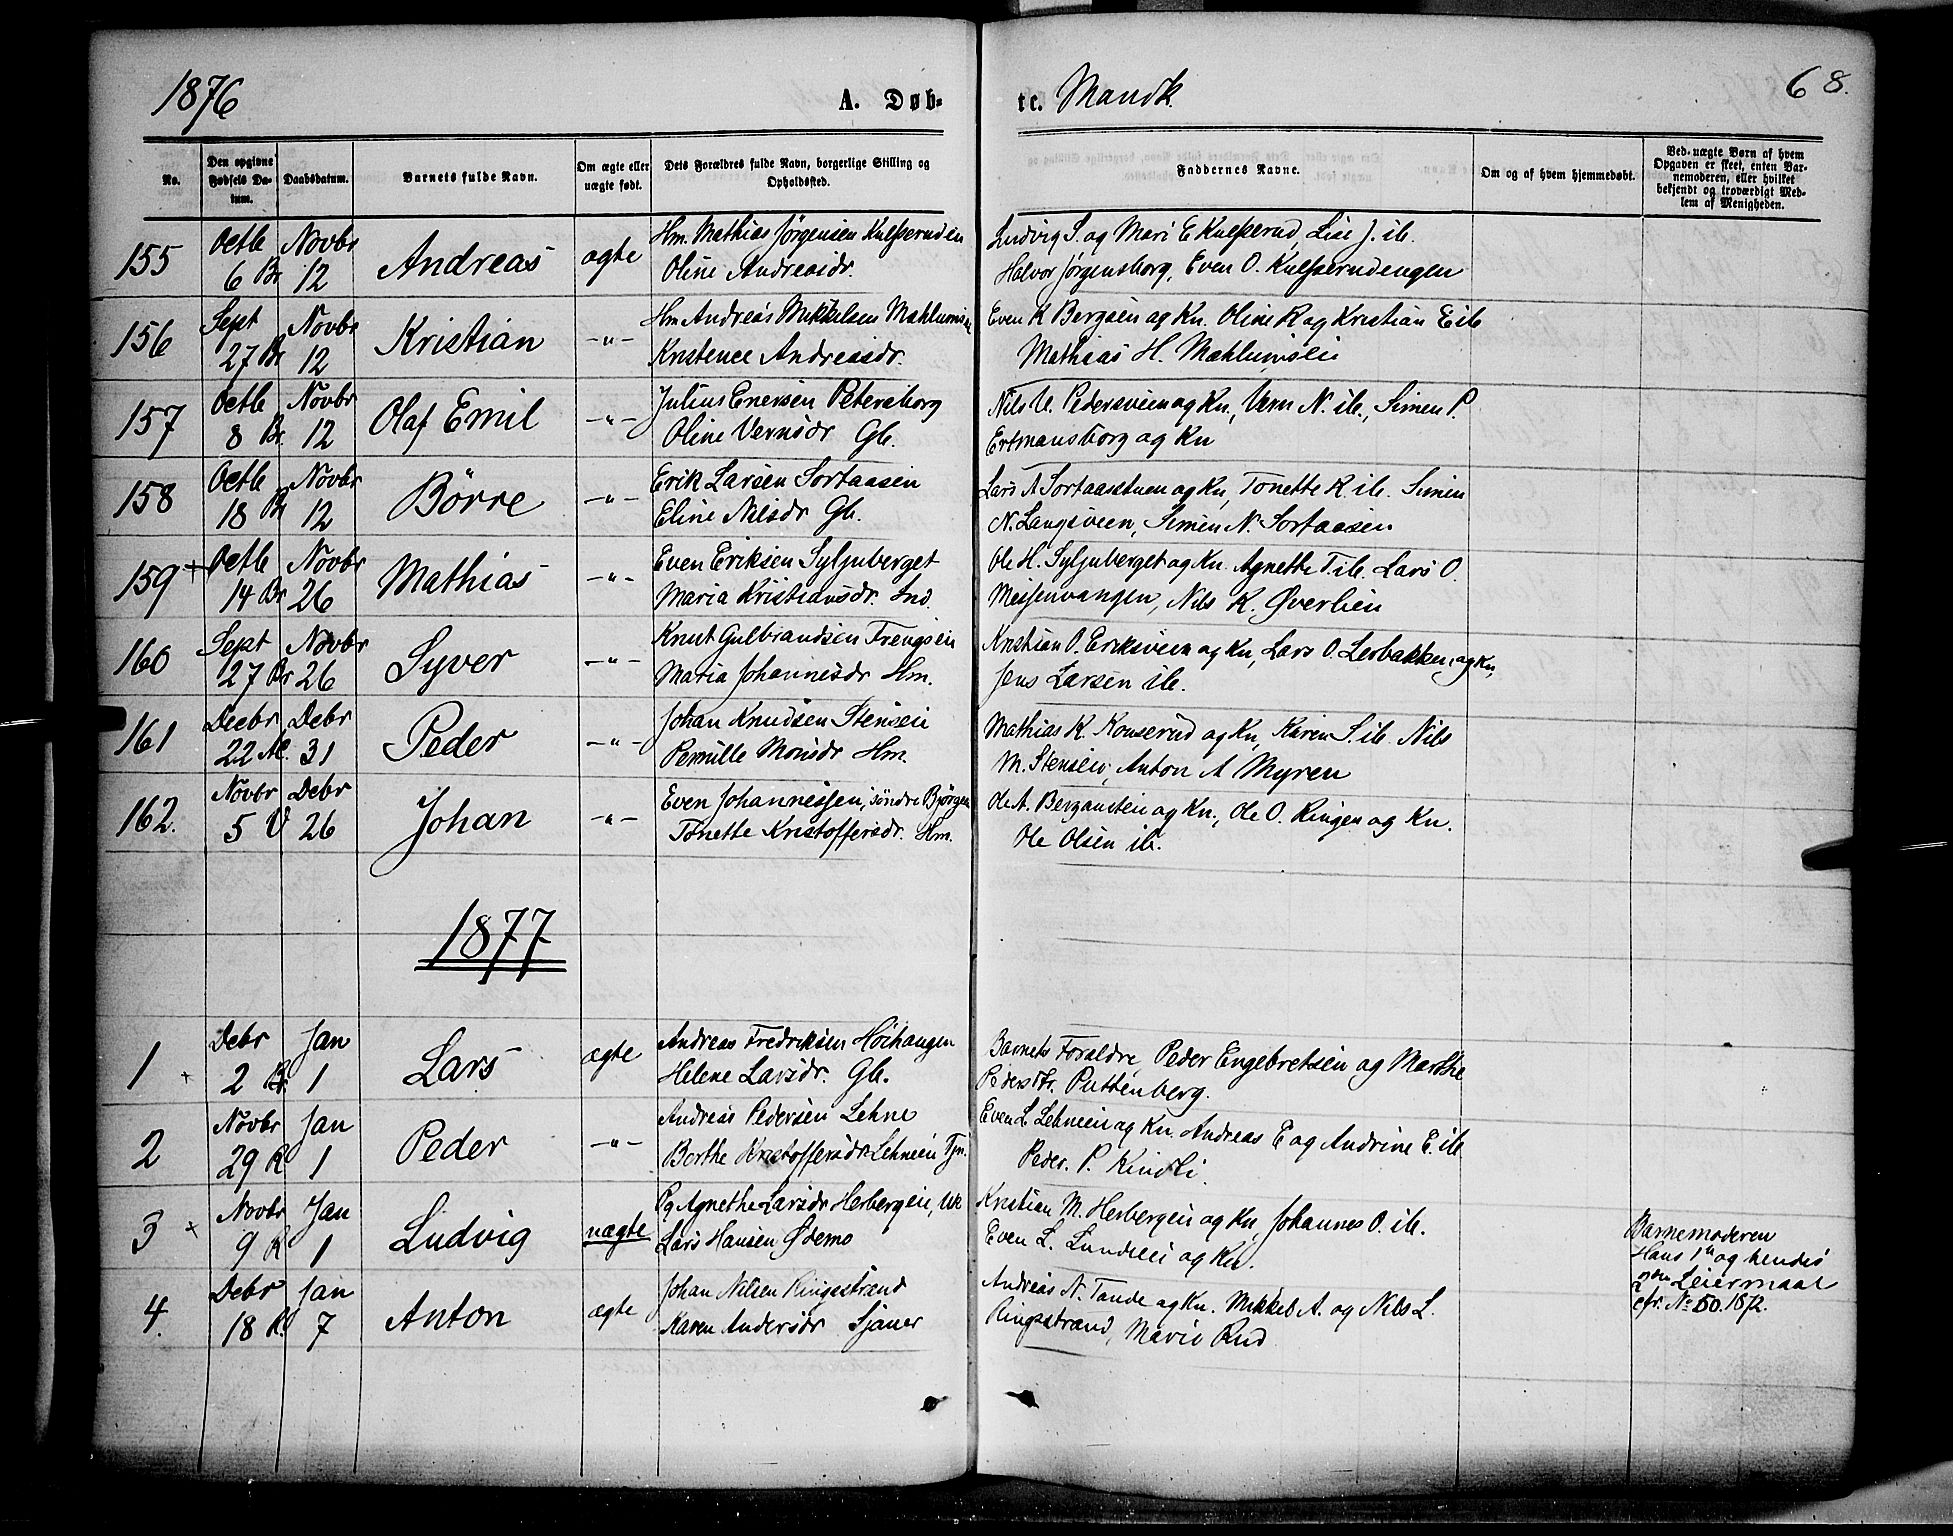 1876
A. Døb-
te. Mandk.
68.
No.
Den opgivne Fødsels Da-tum.
Daabsdatum.
Barnets fulde Navn.
Om ægte eller uægte født.
Dets Forældres fulde Navn, borgerlige Stilling og Opholdssted.
Faddernes Navne.
Om og af hvem hjemmedøbt.
Ved uægte Børn af hvem Opgaven er skeet, enten Bar-nemoderen, eller hvilket bekjendt og troværdigt Med-lem af Menigheden.
155 Octb 6 Br Novbr 12 Andreas ægte
Hm. Mathias Jørgensen
Oline Andreasdr.
Ludvig S. og Mari E Kulsserud, Lise J. ib.
Halvor Jørgensborg, Even O. Kulsserudengen
156 Sept 27 Br Novbr 12 Kristian -"-
Hm Andreas Mikkelsen
Kristence Andreasdr.
Even K Bergseien og Kn. Oline R og Kristian E ib
Mathias H. Mæhlumslie
157 Octb 8 Br. Novbr 12 Olaf Emil -"-
Julius Enersen Petersborg
Oline Vernsdr Gb.
Nils U. Pedersveen og Kn, Vern N. ib., Simen P.
Ertmansborg og Kn
158 Octb 18 Br Novbr 12 Børre -"-
Erik Larsen Sortaasen
Eline Nilsdr Gb.
Lars A Sortaasstuen og Kn, Tonette K ib. Simen
N. Langsveen, Simen N. Sortaasen
159 + Octb 14 Br Novbr 26 Mathias -"-
Even Eriksen Syljuberget
Maria Kristiansdr. Ind.
Ole H. Syljuberget og Kn. Agnette T. ib. Lars O.
Messenvangen, Nils K. Øverlien
160 Sept 27 Br Novbr 26 Syver -"-
Knut Gulbrandsen Trengsein
Maria Johannesdr Hm.
Kristian O. Eriksveen og Kn, Lars O. Lerbakken og Kn,
Jens Larsen ib.
161 Decbr 22 Debr 31 Peder -"-
Johan Knudsen Stenseie
Pernille Monsdr Hm.
Mathias K. Konserud og Kn, Karen S. ib. Nils
M. Stenseie, Anton A Myren
162. Novbr 5 V Debr 26 Johan -"-
Even Johannessen, søndre Bjørgen
Tonette Kristoffersdr. Hm.
Ole A. Berganseien og Kn., Ole O. Ringen og Kn.
Ole Olsen ib.
1877
1 + Debr 2 Br Jan 1 Lars ægte
Andreas Fredriksen Høihaugen
Helene Larsdr. Gb.
Barnets Forældre, Peder Engebretsen og Marthe
Pedersdtr. Puttenberg.
2 Novbr 29 R Jan 1 Peder -"-
Andreas Pedersen Lehne
Berthe Kristoffersdr Lehneeie Tjn.
Even L Lehneeie og Kn. Andreas E og Andrine E. ib
Peder. P. Kindli
3 + Novbr 9 R Jan 1 Ludvig uægte
Pg Agnethe Larsdr Herbergeie, Uk
Lars Hansen Ødemo
Kristian M. Herbergeie og Kn, Johannes O. ib.
Even L. Lundeeie og Kn.
Barnemoderen
Hans 1ste og hendes
2den Leiermaal
cfr. No 50. 1872.
4. Debr 18 R. Jan 7 Anton ægte
Johan Nilsen Ringsstrand
Karen Andersdr Sjauer
Andreas N. Tande og Kn. Mikkel A. og Nils L.
Ringsstrand, Marie Rud